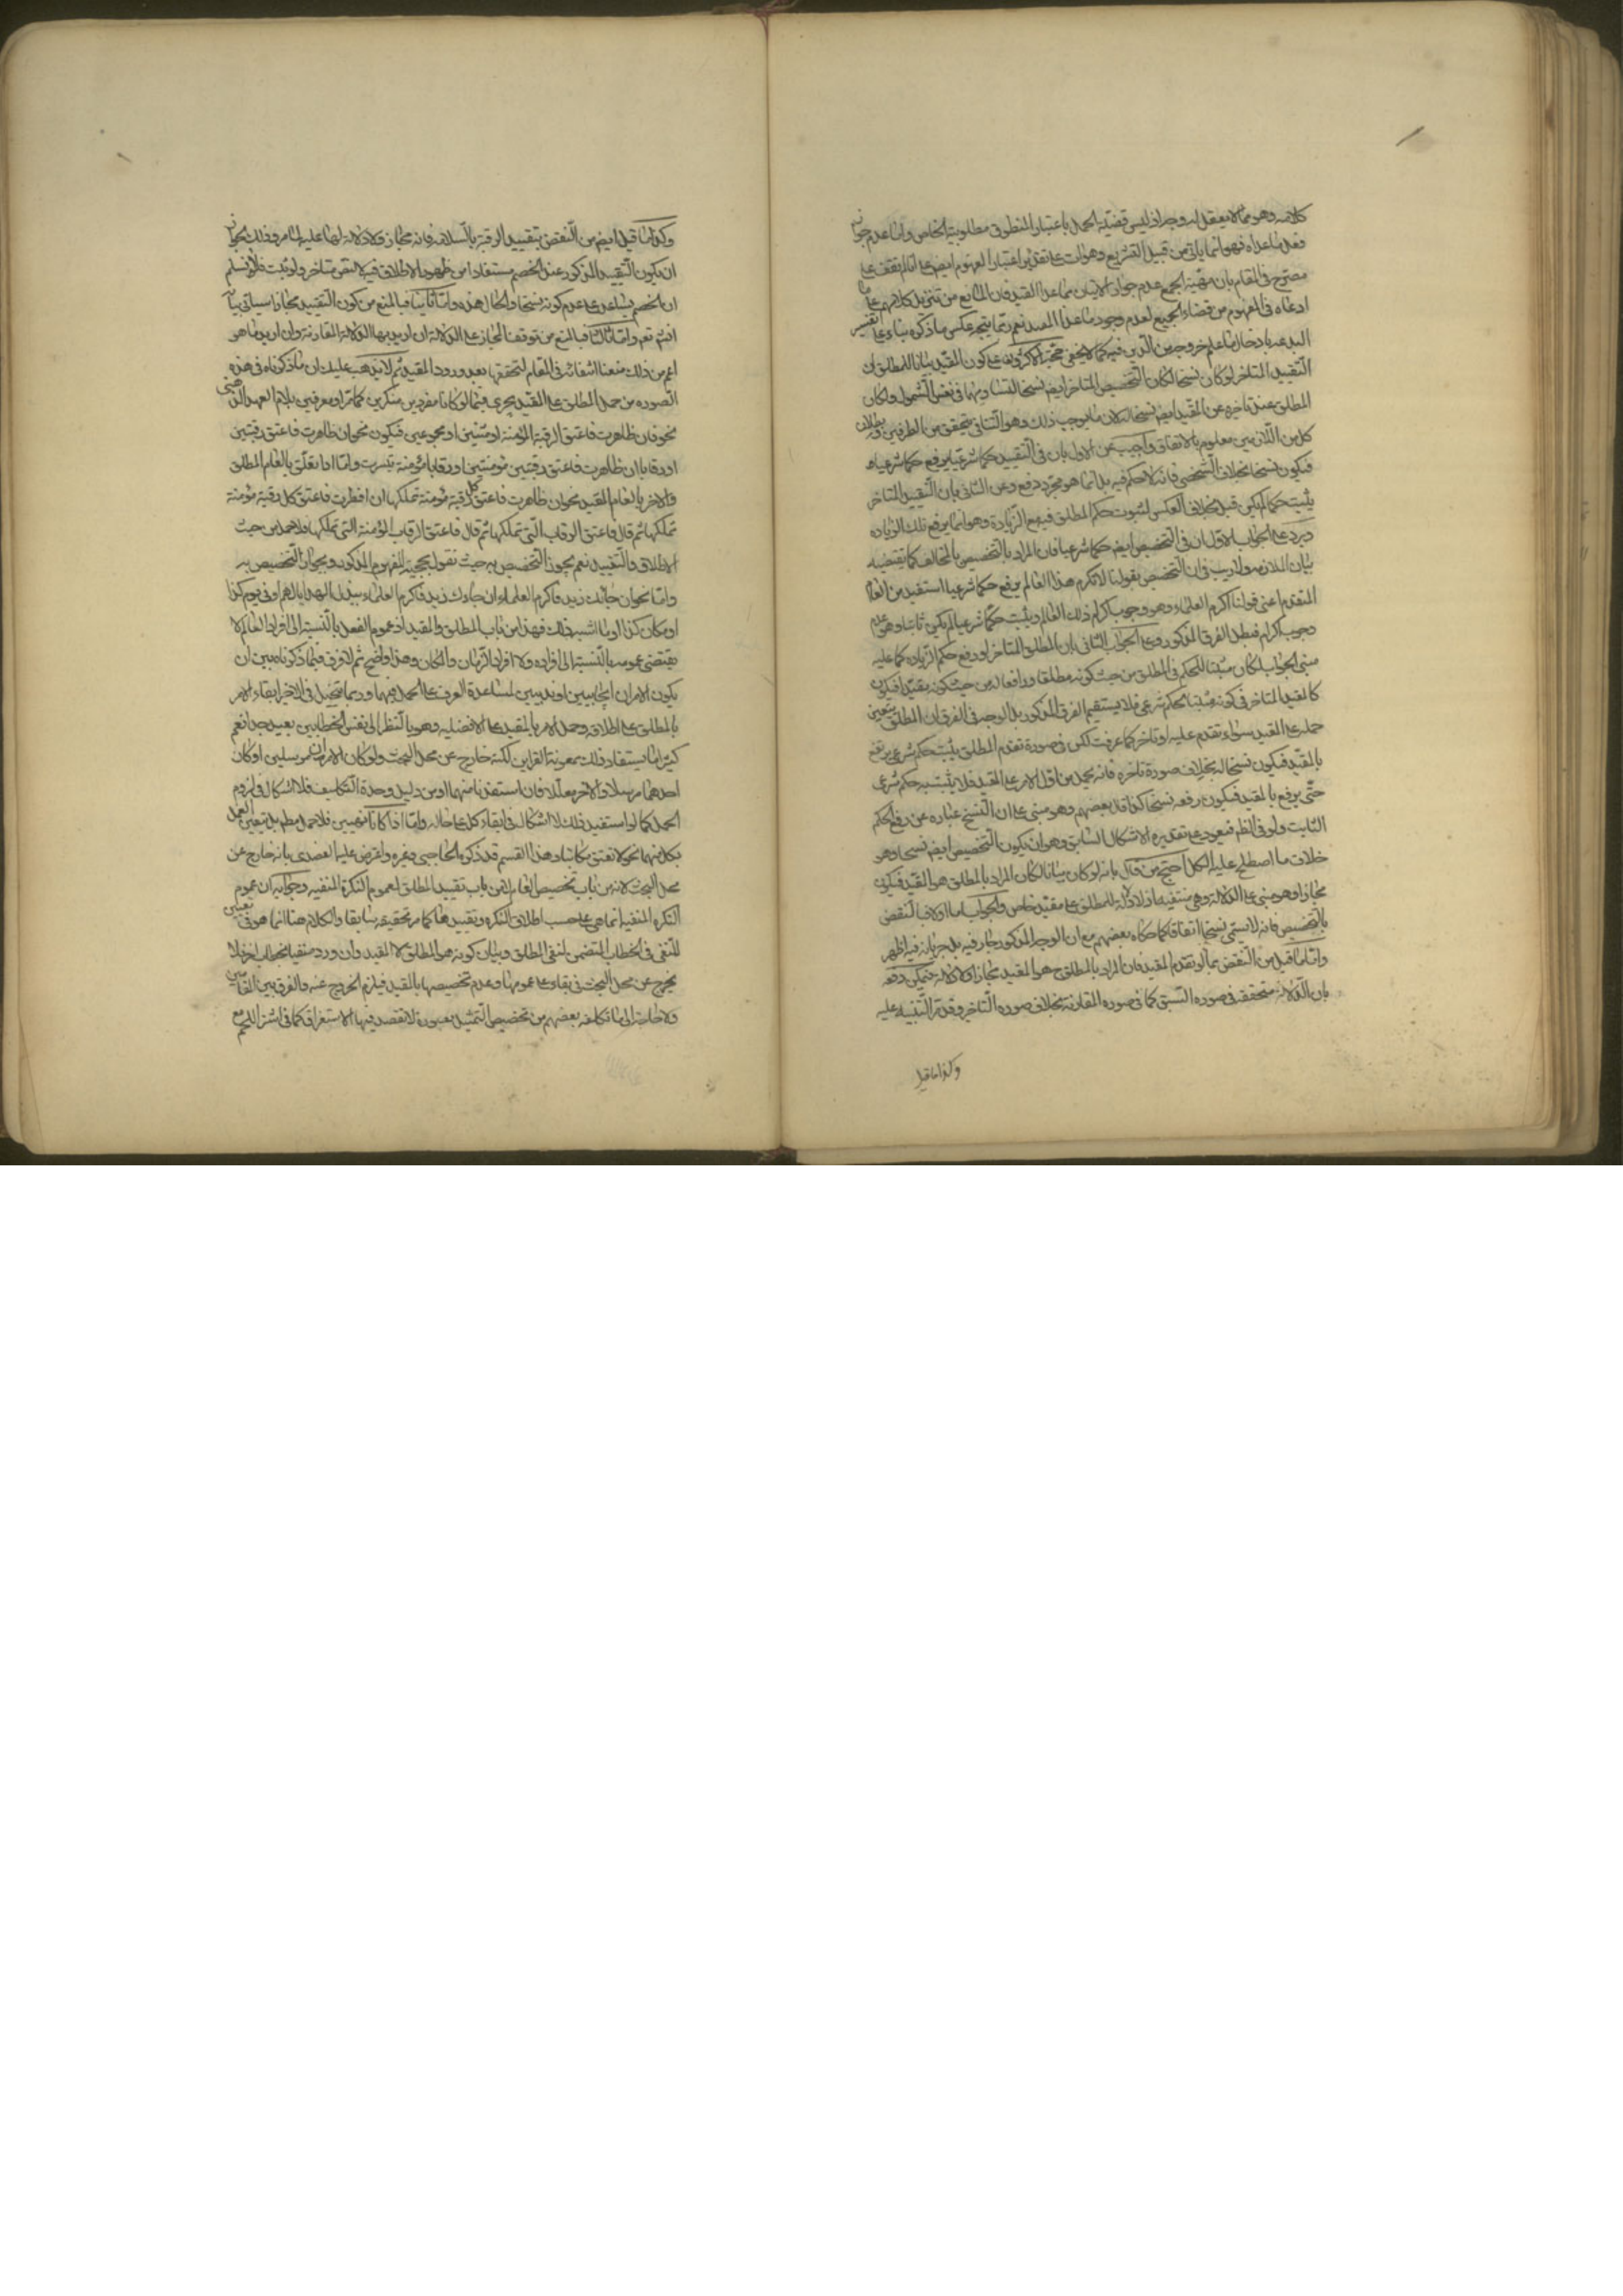 كلامه وهو مما لا يعقل له وجه اذ ليس قضية الحمل باعتبار المنطوق مطلوبية الخاص واما عدم جواز
فعل ما عداه فهو انما ياتي من قبيل التشريع وهوات على تقدير اعتبار المفهوم ايضا على انا لم نقف على
مصرح في المقام بان قضية الجمع عدم جواز الاتيان بما عدا القيد فان المانع من تنزيل كلامهم على ما
ادعاه في المفهوم من قضاء الجمع لعدم وجود ما عدا المقيد نعم ربما يتجه عكس ما ذكره بناء على تفسير
البدعة بادخال ما علم خروجه من الدين فيه كما لا يخفى حجة الاكثرين على كون المقيد بيانا للمطلق ان
التقييد المتاخر لو كان نسخا لكان التخصيص المتاخر ايضا نسخا لتساويهما في نفس الشمول ولكان
المطلق عند تاخره عن المقيد ايضا نسخا له لان ما يوجب ذلك وهو التنافي يتحقق من الطرفين وبطلان
كل من اللازمين معلوم بالاتفاق واجيب عن الاول بان في التقييد حكما شرعيا يرفع حكما شرعيا
فيكون نسخا بخلاف التخصيص فانه لا حكم فيه بل انما هو مجرد دفع وعن الثاني بان التقييد المتاخر
يثبت حكما لم يكن قبل بخلاف العكس لثبوت حكم المطلق فيه مع الزيادة وهو انما يرفع تلك الزيادة
ويرد على الجواب الاول ان في التخصيص ايضا حكما شرعيا فان المراد بالتخصيص بالمخالف كما يقتضيه
بيان الملازمة ولا ريب في ان التخصيص بقولنا لا تكرم هذا العالم يرفع حكما شرعيا استفيد من العام
المتقدم اعني قولنا اكرم العلماء وهو وجوب اكرام ذلك العالم ويثبت حكما شرعيا لم يكن ثابتا وهو عدم
وجوب اكرامه فبطل الفرق المذكور وعلى الجواب الثاني بان المطلق المتاخر لو رفع حكم الزيادة كما عليه
مبنى الجواب لكان مثبتا للحكم في المطلق من حيث كونه مطلقا ورافعا له من حيث كونه مقيدا فيكون
كالمقيد المتاخر في كونه مثبتا لحكم شرعي فلا يستقيم الفرق المذكور بل الوجه في الفرق ان المطلق يتعين
حمله على المقيد سواء تقدم عليه او تاخر كما عرفت لكن في صورة تقدم المطلق يثبت حكم شرعي يرتفع
بالمقيد فيكون نسخا له بخلاف صورة تاخره فانه يحمل من اول الامر على المقيد فلا يثبت به حكم شرعي
حتى يرفع بالمقيد فيكون رفعه نسخا كذا قال بعضهم وهو مبني على ان النسخ عبارة عن رفع الحكم
الثابت ولو في الظاهر فيعود على تقديره الاشكال السابق وهو ان يكون التخصيص ايضا نسخا وهو
خلاف ما اصطلح عليه الكل احتج من قال بانه لو كان بيانا لكان المراد بالمطلق هو المقيد فيكون
مجازا وهو مبني على الدلالة وهي منتفية اذ لا دلالة للمطلق على مقيد خاص والجواب اما اولا فبالنقض
بالتخصيص فانه لا يسمى نسخا اتفاقا كما حكاه بعضهم مع ان الوجه المذكور جار فيه بل جريانه فيه اظهر
واما ما قيل من النقض بما لو تقدم المقيد فان المراد بالمطلق ح هو المقيد مجازا ولا دلالة فيمكن دفعه
بان الدلالة متحققة في صورة السبق كما في صورة المقارنة بخلاف صورة التاخر وقد مر التنبيه عليه
وكذا ما قيل
وكذا ما قيل ايضا من النقض بتقييد الرقبة بالسلامة فانه مجاز ولا دلالة لها عليه لما مر وذلك لجواز
ان يكون التقييد المذكور عند الخصم مستفادا من ظهور الاطلاق فيه لا لنص متاخر ولو ثبت فلا نسلم
ان الخصم يساعد على عدم كونه نسخا والحال هذه واما ثانيا فبالمنع من كون التقييد مجازا سياتي بيانه
انش نعم واما ثالثا فبالمنع من توقف المجاز على الدلالة ان اريد بها الدلالة المقارنة وان اريد ما هو
اعم من ذلك منعنا انتفائه في المقام لتحققها بعد ورود المقيد ثم لا يذهب عليك ان ما ذكرناه في هذه
الصورة من حمل المطلق على المقيد يجري فيما لو كانا مفردين منكرين كما مر او معرفين بلام العهد الذهني
نحو فان ظاهرت فاعتق الرقبة المؤمنة او مثنيين او مجموعين فيكون نحو ان ظاهرت فاعتق رقبتين
او رقابا ان ظاهرت فاعتق رقبتين مؤمنتين او رقابا مؤمنة تيسرت واما اذا تعلق بالعام المطلق
والاخر بالعام المقيد نحو ان ظاهرت فاعتق كل رقبة مؤمنة تملكها ان افطرت فاعتق كل رقبة مؤمنة
تملكها ثم قال فاعتق الرقاب التي تملكها ثم قال فاعتق الرقاب المؤمنة التي تملكها فلا حمل من حيث
الاطلاق والتقييد نعم يجوز التخصيص به حيث نقول بحجية المفهوم المذكور وبجواز التخصيص به
واما نحو ان جائك زيد فاكرم العلماء ان جاءك زيد فاكرم العلماء ببذل الهدايا لهم او في يوم كذا
او مكان كذا او ما اشبه ذلك فهذا من باب المطلق والمقيد اذ عموم الفعل بالنسبة الى افراد العالم لا
يقتضي عمومه بالنسبة الى افراده ولا افراد الزمان والمكان وهذا واضح ثم لا فرق فيما ذكرناه بين ان
يكون الامران ايجابيين او ندبيين لمساعدة العرف على الحمل فيهما وربما يتخيل في الاخير ابقاء الامر
بالمطلق على اطلاقه وحمل الامر بالمقيد على الافضلية وهو بالنظر الى نفس الخطابين بعيد جدا نعم
كثيرا ما يستفاد ذلك بمعونة القراين لكنه خارج عن محل البحث ولو كان الامران مرسلين او كان
احدهما مرسلا والاخر معللا فان استفدنا منهما او من دليل وحدة التكليف فلا اشكال في لزوم
الحمل كما لو استفيد ذلك لا اشكال في ابقاء كل على حاله واما اذا كانا منفيين فلا حمل مطلقا بل يتعين العمل
بكل منهما نحو لا تعتق مكاتبا وهذا القسم قد ذكره الحاجبي وغيره واعترض عليه العضدي بانه خارج عن
محل البحث لانه من باب تخصيص العام لا من باب تقييد المطلق لعموم النكرة المنفية وجوابه ان عموم
النكرة المنفية انما هي على حسب اطلاق النكرة وتقييدها كما مر تحقيقه سابقا والكلام هنا انما هو في تعيين
المنفي في الخطاب المتضمن لنفي المطلق وبيان كونه هو المطلق لا المقيد وان ورد منفيا بخطاب اخر فلا
يخرج عن محل البحث في بقاءه على عمومها وعدم تخصيصها بالمقيد فيلزم الخروج عنه والفرق بين المقامين
ولا حاجة الى ما تكلفه بعضهم من تخصيص التمثيل بصورة لا تقصد فيها الاستغراق كما في اشتر اللحم